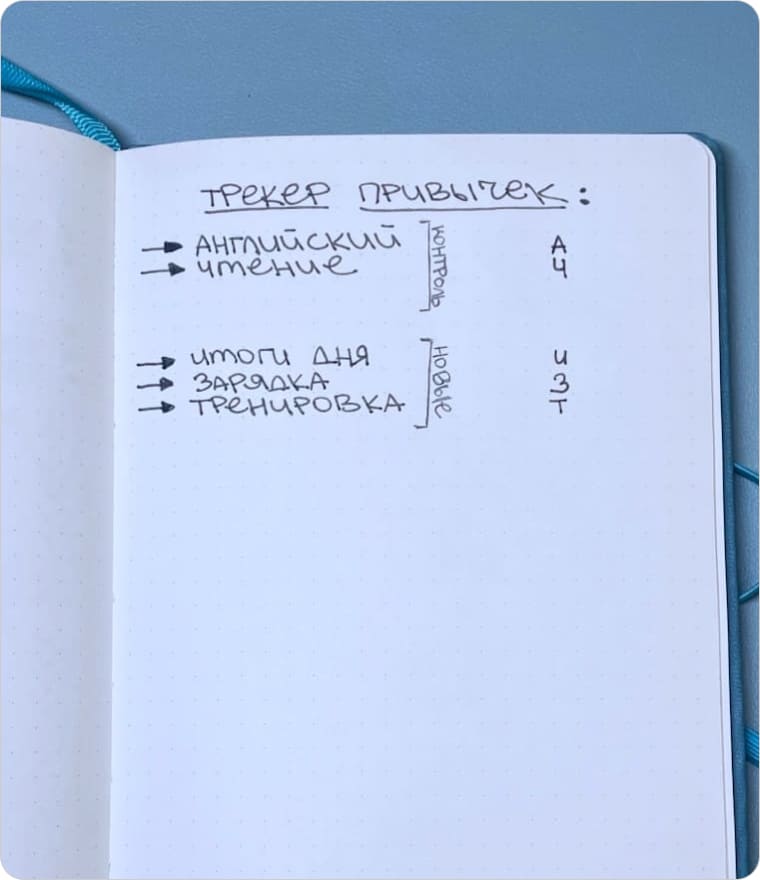 ТРЕКЕР ПРИВЫЧЕК:
→ АНГЛИЙСКИЙ А
→ ЧТЕНИЕ Ч
КОНТРОЛЬ
→ ИТОГИ ДНЯ И
→ ЗАРЯДКА З
→ ТРЕНИРОВКА Т
НОВЫЕ